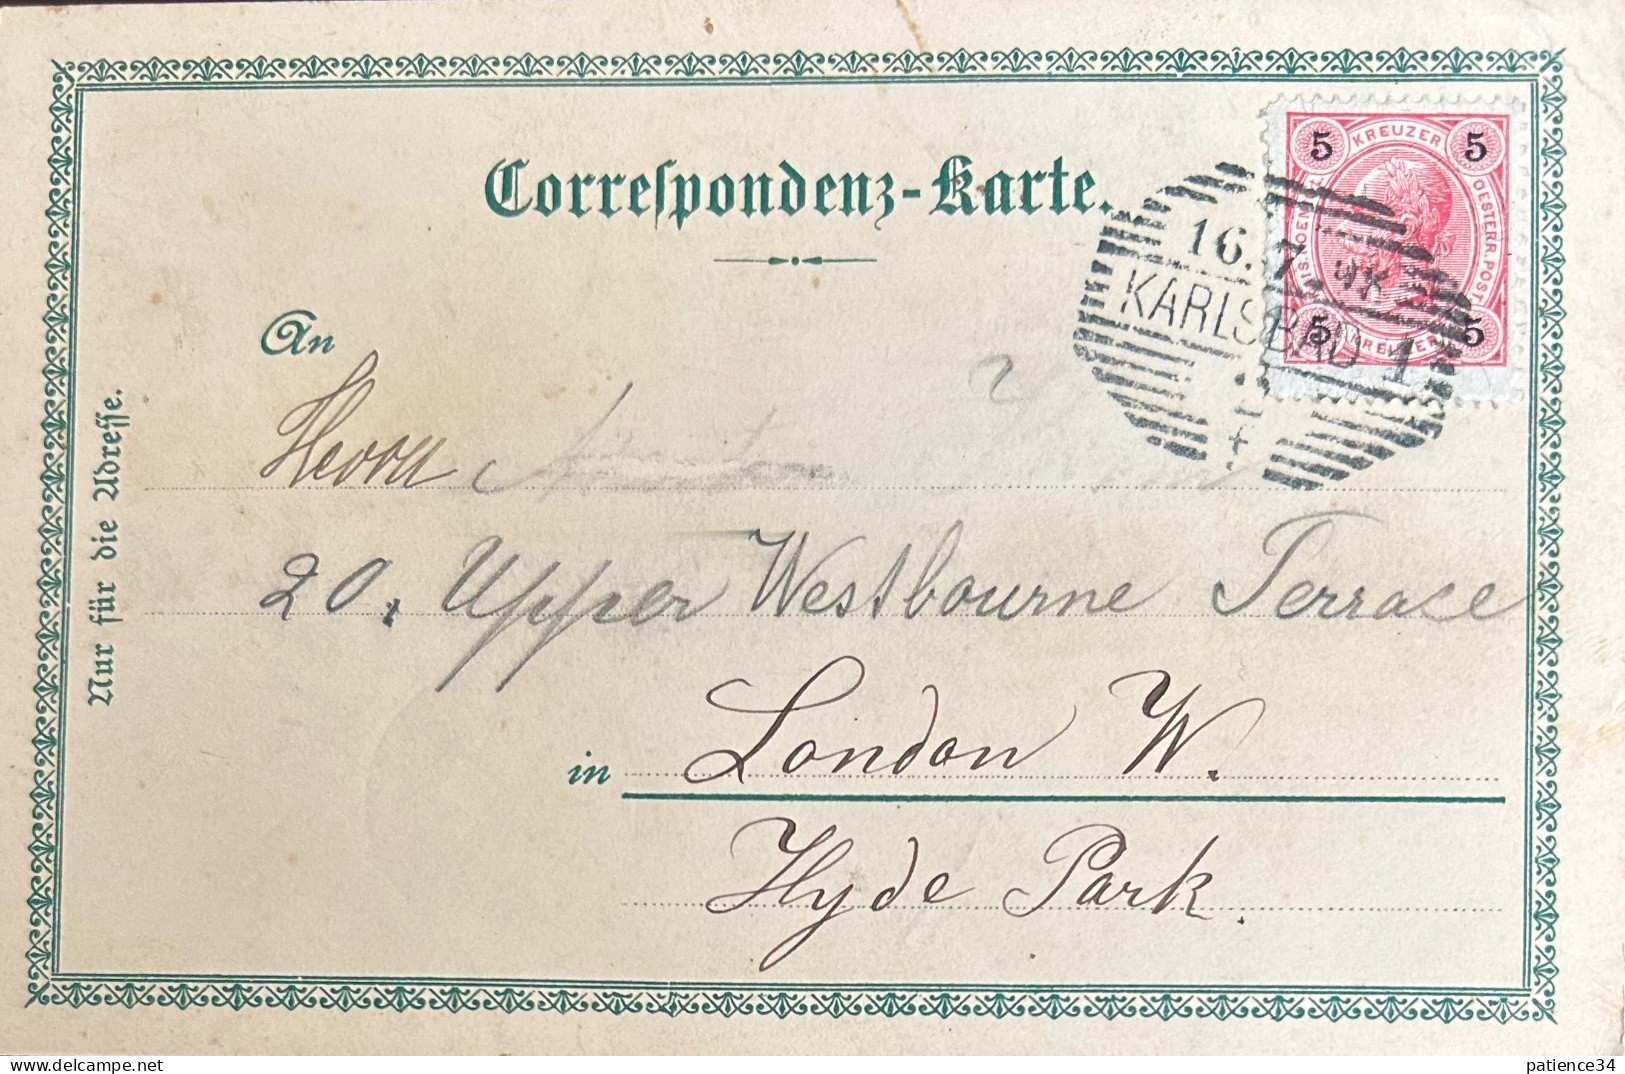 Correspondenz-Karte.
5 KREUZER 5
OESTERR. POST
5 KREUZER 5
16. 7
KARLSBAD 1
An
Herrn
20, Upper Westbourne Terrace
in London W.
Hyde Park.
Nur für die Adresse.
www.delcampe.net
patience34